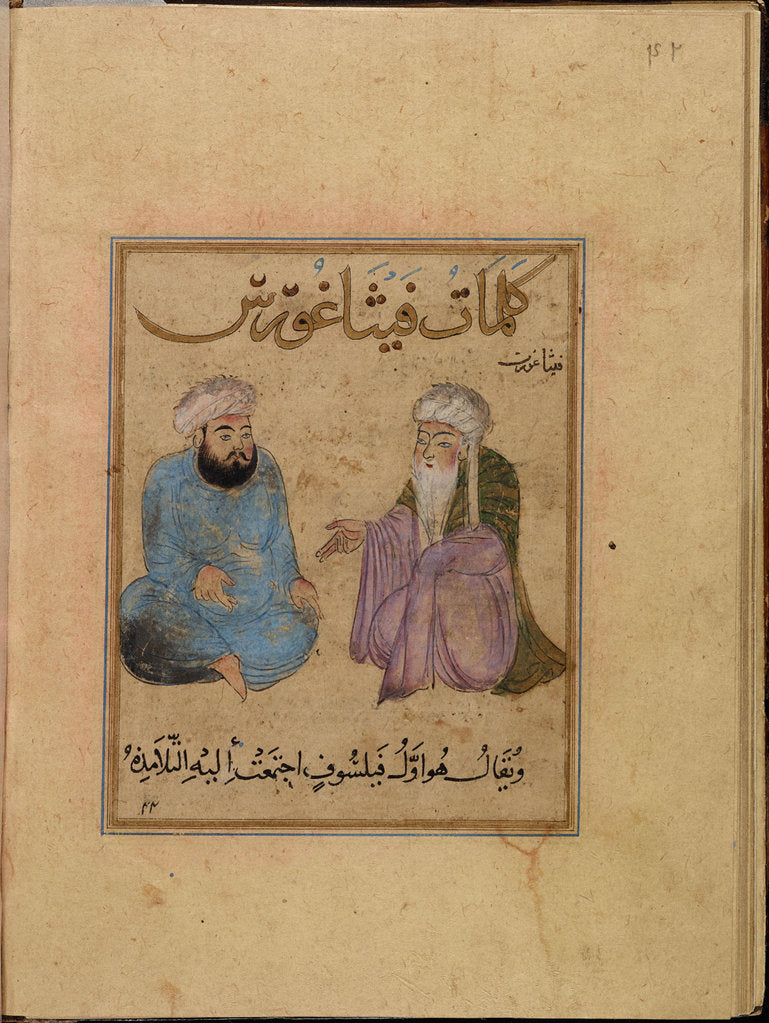 ۴۲
كَلِمَاتُ فَيْثَاغُوْرَسَ
فيثاغورث
وَيُقَالُ هُوَ اَوَّلُ فَيْلَسُوفٍ اجْتَمَعَتْ إِلَيْهِ التَّلَامِذَةُ
۴۴